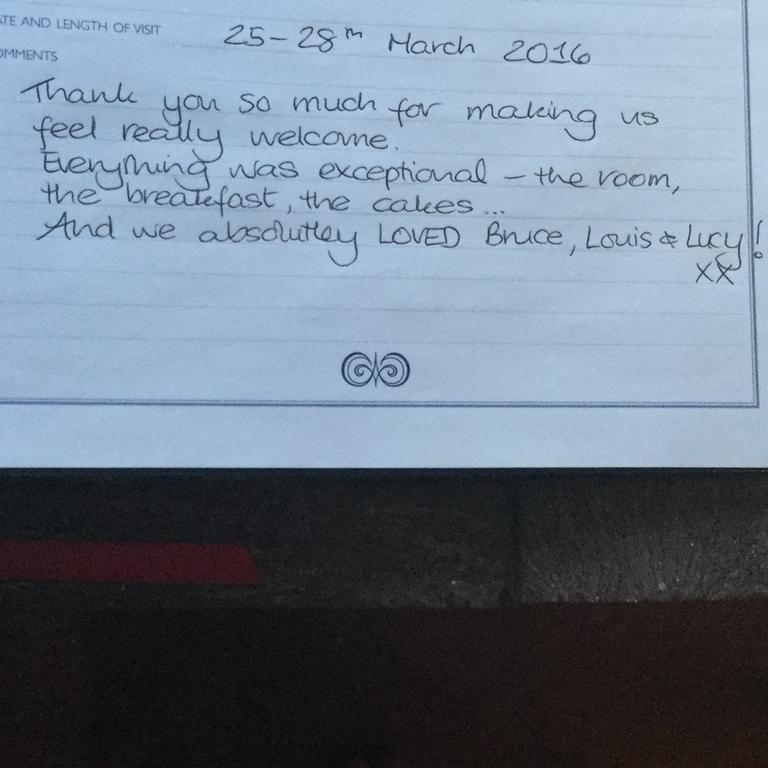 ATE AND LENGTH OF VISIT 25-28th March 2016
OMMENTS
Thank you so much for making us
feel really welcome.
Everything was exceptional – the room,
the breakfast, the cakes...
And we absolutley LOVED Bruce, Louis & Lucy!
xx